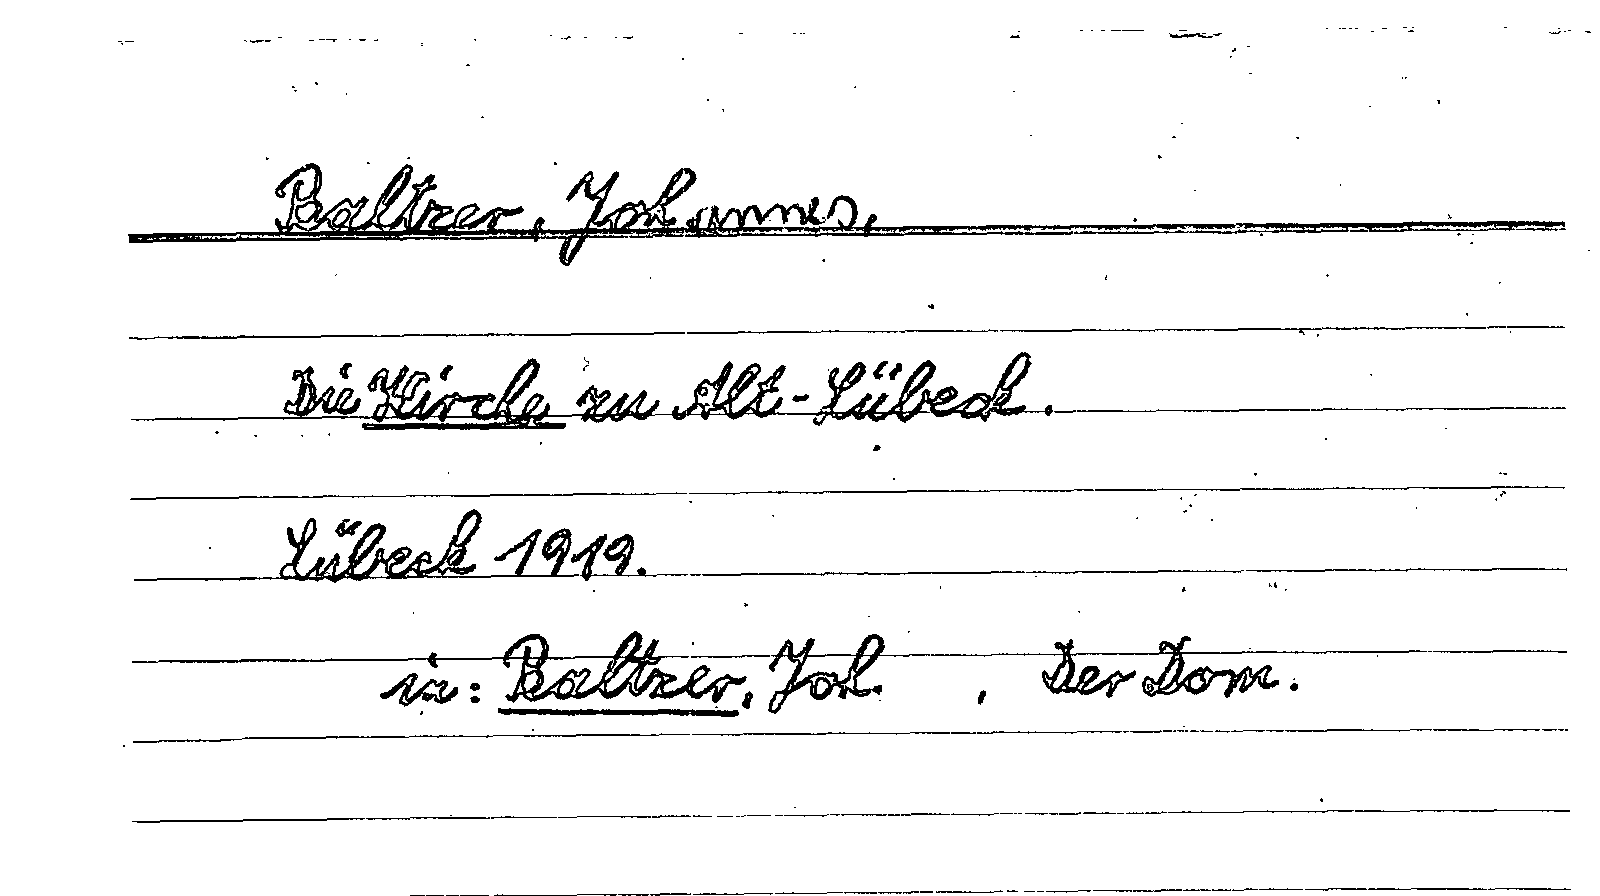 Baltzer, Johannes,
Die Kirche zu Alt-Lübeck.
Lübeck 1919.
in: Baltzer, Joh. , Der Dom.